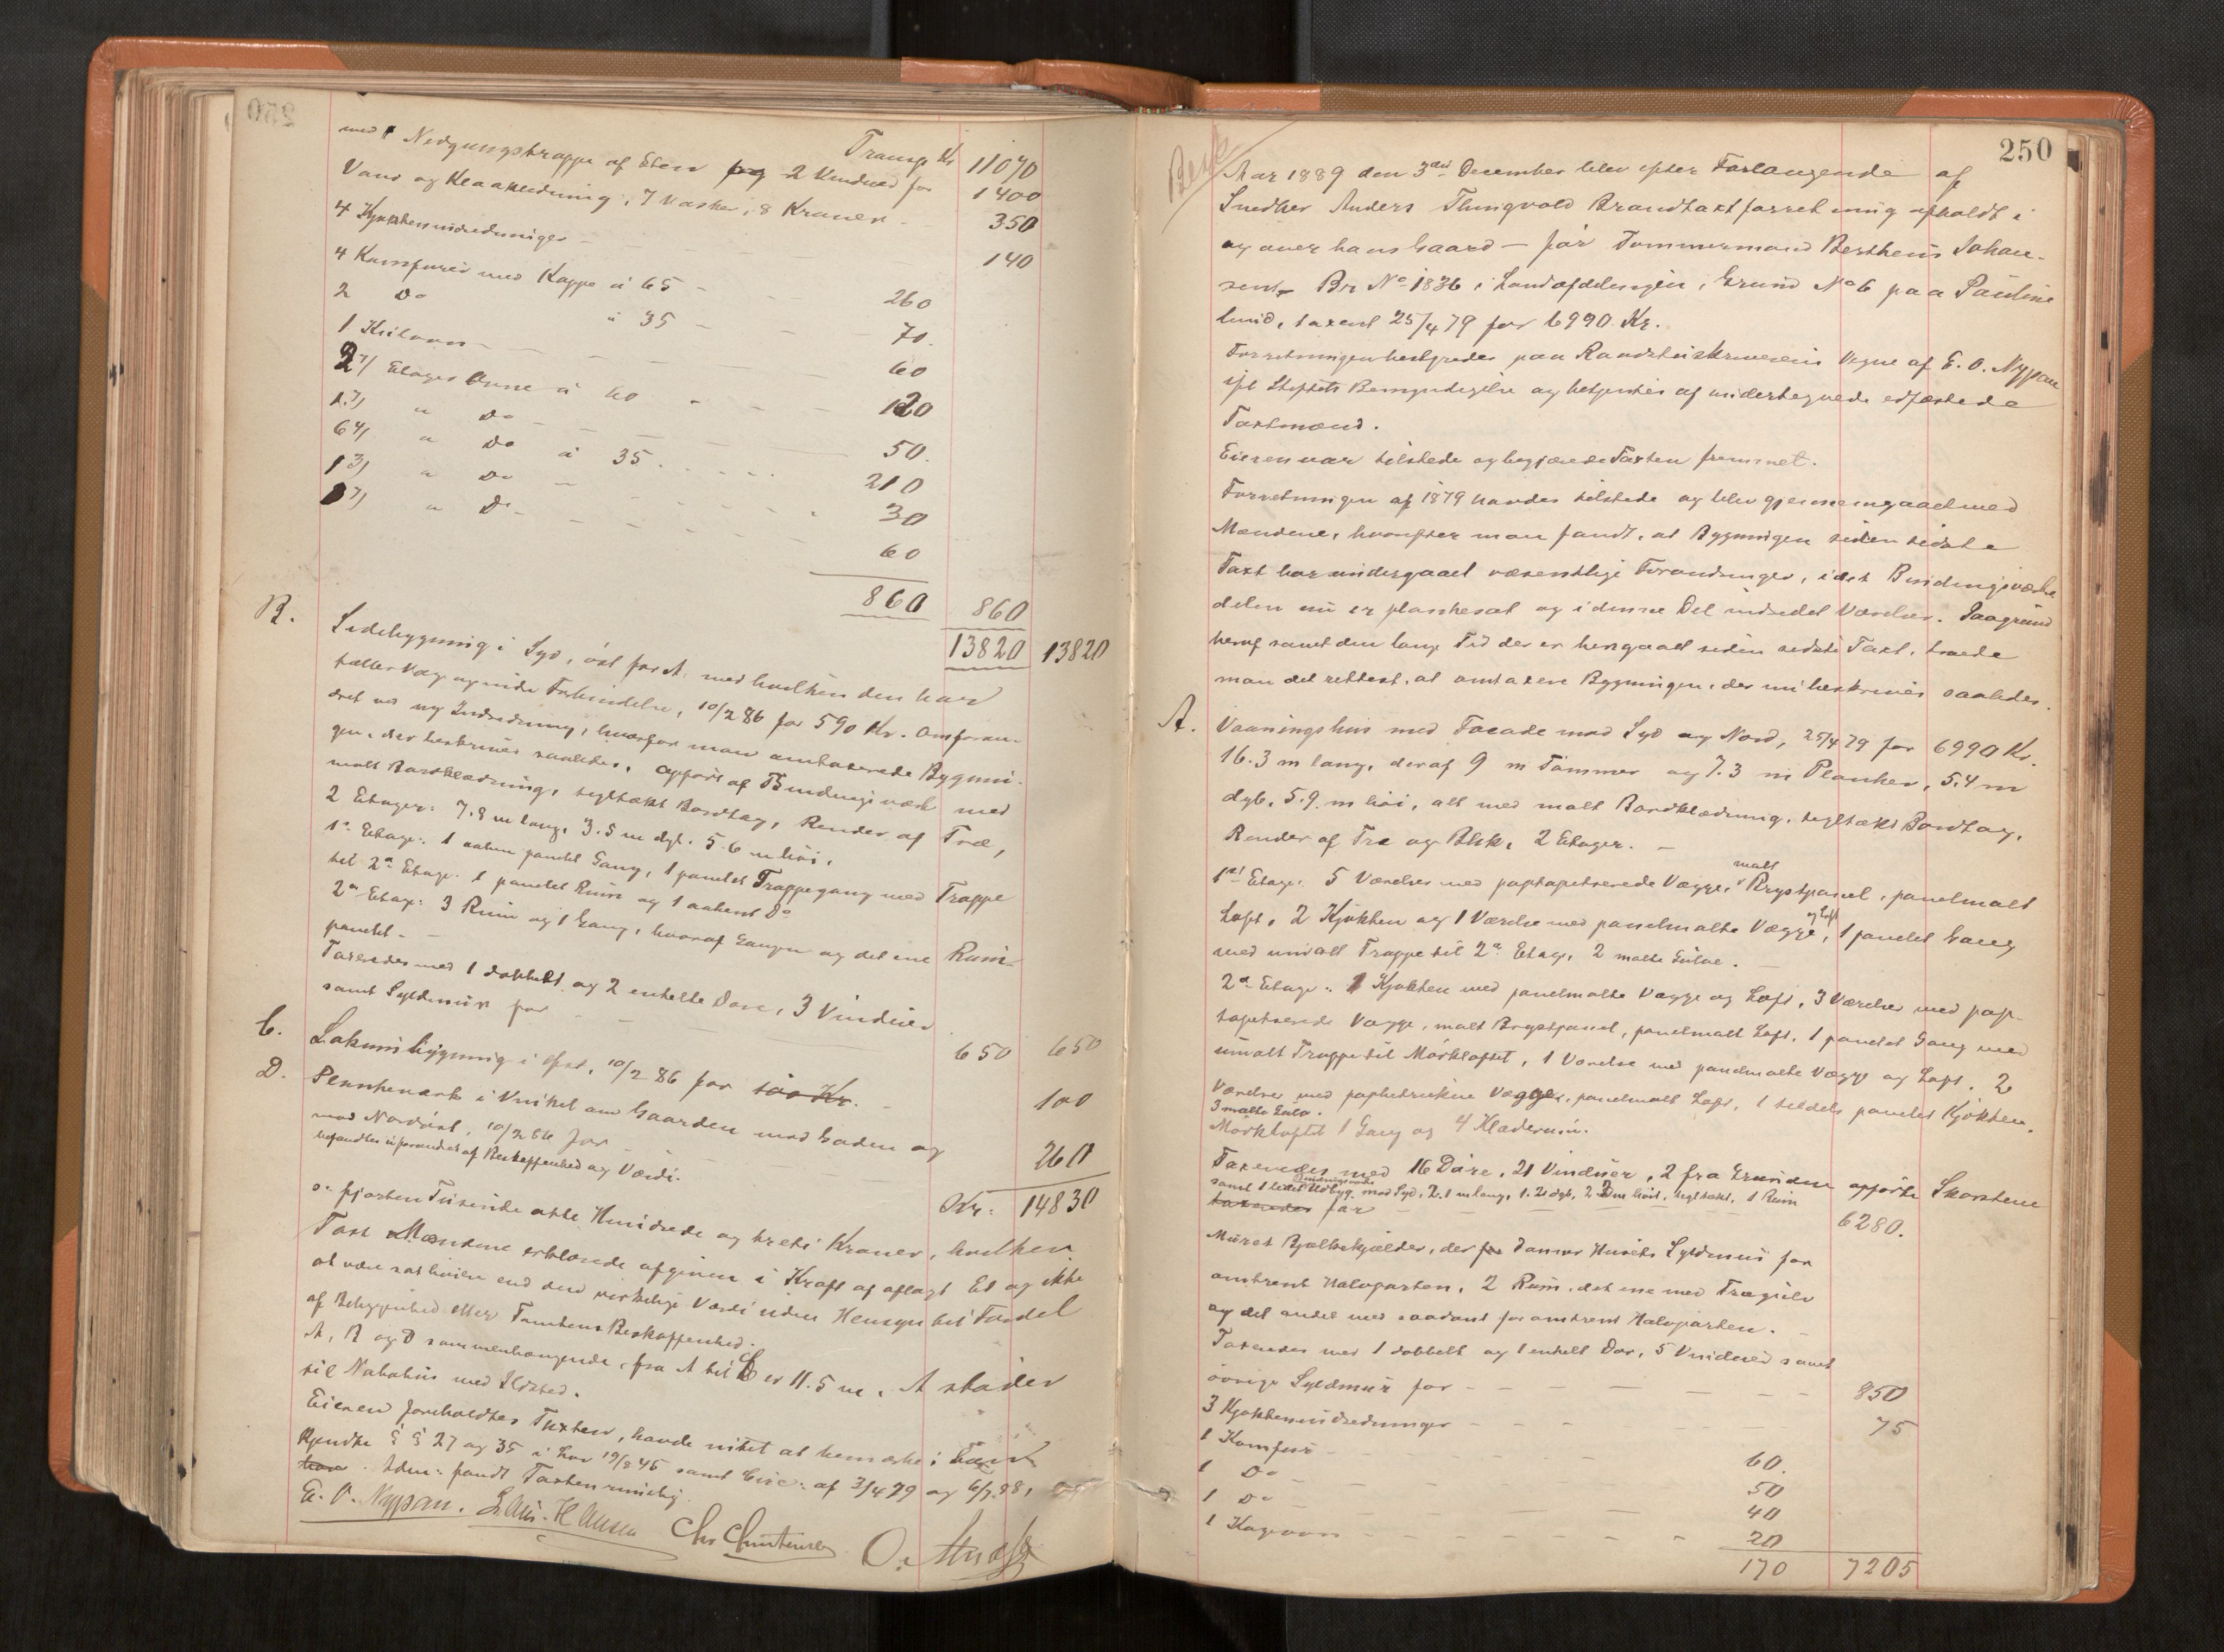 Transp. Kr 11070
med 1 Nedgangstrappe af Sten 2 Vinduer for 1400
Vand og Kloakledning, 7 Vasker, 8 Kraner - 350
4 Kjøkkenindredninger - - - 140
4 Komfurer med Kappe à 65 - - 260
2 Do à 35 - - 70.
1 Kilovn - - - 60
2 7/ Etages Ovne à 60 - - - 120
1 7/ " Do - - - 50.
6 4/ " Do à 35 - - - 210
1 3/ " Do - - - 30
7/ " Do - - - 60
860 860
13820 13820
B. Sidebygning i Syd, øst for A. med hvilken den har
fælles Væg og indre Forbindelse, 10/2 86 for 590 Kr. Omforan-
dret ved ny Indredning, hvorfor man omtaxerede Bygnin-
gen, der beskrives saaledes. Opført af Bindingsværk med
malt Bordklædning, tegltækt Bordtag, Render af Træ,
2 Etager. 7.8 m lang, 3.5 m dyb. 5.6 m høi.
1ste Etage: 1 aaben panelt Gang, 1 panelt Trappegang med Trappe
til 2den Etage. 1 panelt Rum og 1 aabent Do
2den Etage: 3 Rum og 1 Gang, hvoraf Gangen og det ene Rum
panelt. -
Taxeredes med 1 dobbelt og 2 enkelte Døre, 3 Vinduer
samt Syldmur for - - - 650 650
C. Lokumsbygning i Øst, 10/2 86 for 100 Kr. - 100
D. Plankeværk i Vinkel om Gaarden mod Gaden og
mod Nordøst, 10/2 86 for - - - 260
befandtes uforandret af Beskaffenhed og Værdi.
Kr. 14830
er fjorten Tusinde otte Hundrede og treti Kroner, hvilken
Taxt Mændene erklærede afgiven i Kraft af aflagt Ed og ikke
at være sat høiere end den virkelige Værdi uden Hensyn til Fordel
af Beliggenhed eller Tomtens Beskaffenhed.
A, B og D sammenhængende, fra A til C er 11.5 m. A støder
til Nabohus med Ildsted.
Eieren foreholdtes Taxten, havde intet at bemærke i
Kjendte § § 27 og 35 i Lov 19/8 45 samt Circ: af 3/4 79 og 6/7 88,
Idem: fandt Taxten rimelig.
E. O. Nypan. Hansen Chr Christensen O.
250
Besk
Aar 1889 den 3die December blev efter Forlangende af
Snedker Anders Thingvold Brandtaxtforretning afholdt i
og over hans Gaard - før Tømmermand Berthens Johan-
sens Br No 1836 i Landafdelingen, Grund No 6 paa Pauline
lund, taxert 25/4 79 for 6990 Kr.
Forretningen bestyredes paa Raadstuskriverens Vegne af E. O. Nypan
ifl Stiftets Bemyndigelse og betjentes af undertegnede edfæstede
Taxtmænd.
Eieren var tilstede og begjærede Taxten fremmet.
Forretningen af 1879 havdes tilstede og blev gjennemgaaet med
Mændene, hvorefter man fandt, at Bygningen siden sidste
Taxt har undergaaet væsentlige Forandringer, idet Bindingsværks
delen nu er plankesat og i denne Del indredet Værelser. Paagrund
heraf samt den lange Tid der er hengaaet siden sidste Taxt, troede
man det rettest, at omtaxere Bygningen, der nu beskrives saaledes.
A. Vaaningshus med Facade mod Syd og Nord, 25/4 79 for 6990 Kr.
16.3 m lang, deraf 9 m Tømmer og 7.3 m Planker, 5.4 m
dyb, 5.9 m høi, alt med malt Bordklædning, tegltækt Bordtag,
Render af Træ og Blik, 2 Etager. -
1ste Etage: 5 Værelser med paptapetserede Vægge, malt Brystpanel, panelmalt
Loft, 2 Kjøkken og 1 Værelse med panelmalte Vægge og Loft, 1 panelt Gang
med umalt Trappe til 2den Etage, 2 malte Gulve. -
2den Etage: 1 Kjøkken med panelmalte Vægge og Loft, 3 Værelser med pap-
tapetserede Vægge, malt Brystpanel, panelmalt Loft, 1 panelt Gang med
umalt Trappe til Mørkloftet, 1 Værelse med panelmalte Vægge og Loft. 2
Værelser med papbetrukne Vægge, panelmalt Loft, 1 tildels panelet Kjøkken.
3 malte Gulv.
Mørkloftet 1 Gang og 4 Klæderum.
Taxeredes med 16 Døre, 21 Vinduer, 2 fra Grunden opførte Skorstene
samt 1 lidet Bindingsværks Udbyg. mod Syd, 2.1 m lang, 1.2 dyb, 2.2 m høit, tegltækt, 1 Rum
taxeredes for - - - 6280.
Muret Bjælkekjælder, der danner Husets Syldmur for
omtrent Halvparten, 2 Rum, det ene med Trægulv
og det andet med saadant for omtrent Halvparten. -
Taxeredes med 1 dobbelt og 1 enkelt Dør, 5 Vinduer samt
øvrige Syldmur for - - - 850
3 Kjøkkenindredninger - - - 75
1 Komfur - - - 60.
1 Do - - - 50
1 Do - - - 40
1 Kogeovn - - - 20
170 7205